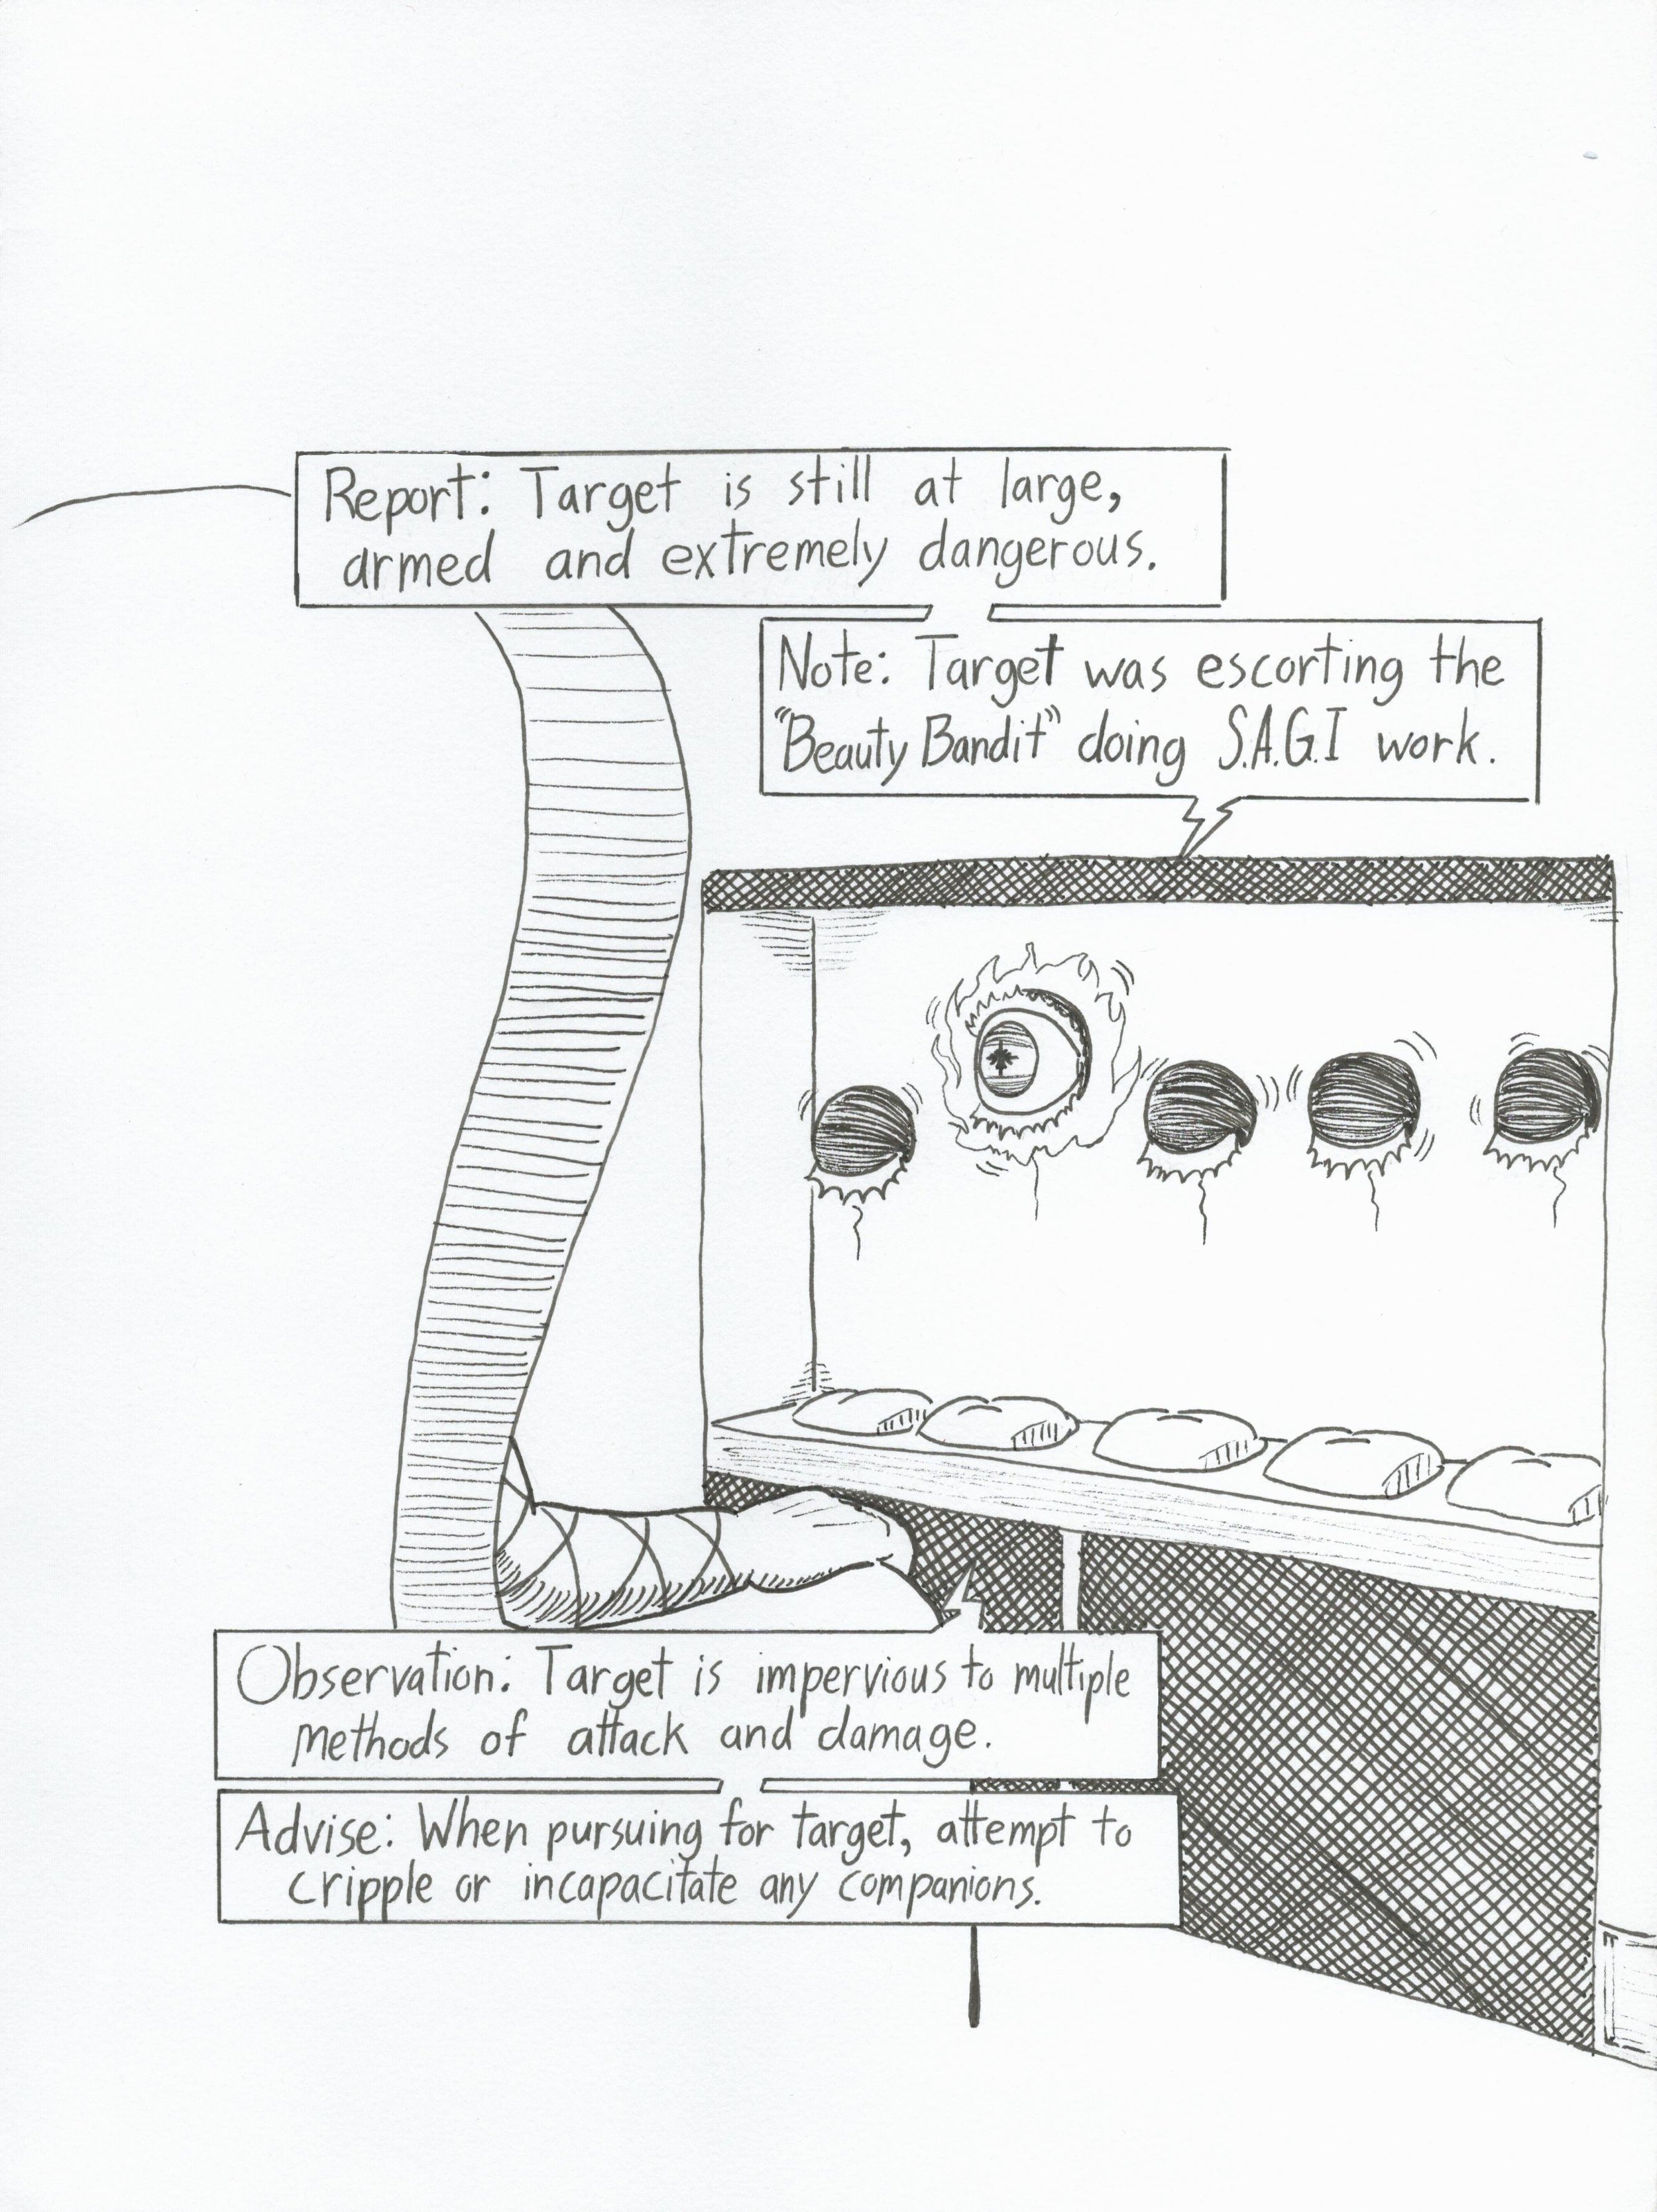 Report: Target is still at large,
armed and extremely dangerous.
Note: Target was escorting the
"Beauty Bandit" doing S.A.G.I work.
Observation: Target is impervious to multiple
methods of attack and damage.
Advise: When pursuing for target, attempt to
cripple or incapacitate any companions.